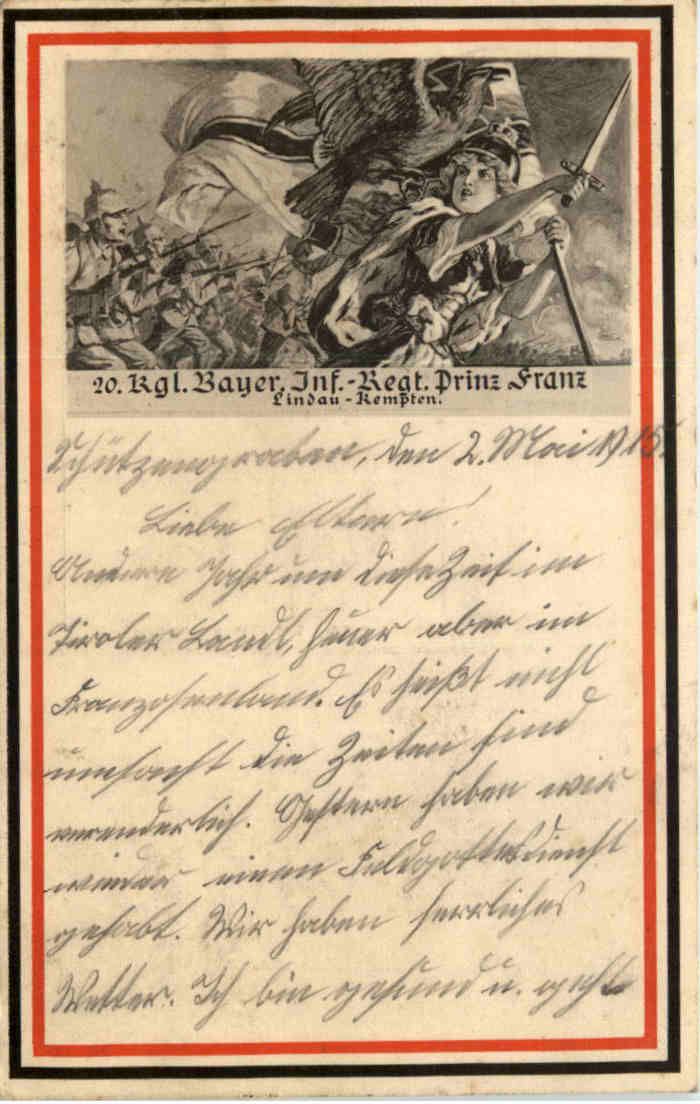 20. Kgl. Bayer. Inf.-Regt. Prinz Franz
Lindau - Kempten.
Schützengraben, den 2. Mai 1915.
Liebe Eltern!
Andere Jahr um diese Zeit im
Tiroler Landl, heuer aber im
Franzosenland. Es heißt nicht
umsonst die Zeiten sind
verenderlich. Gestern haben wir
wieder einen Feldgottesdienst
gehabt. Wir haben herrliches
Wetter. Ich bin gesund u. geht